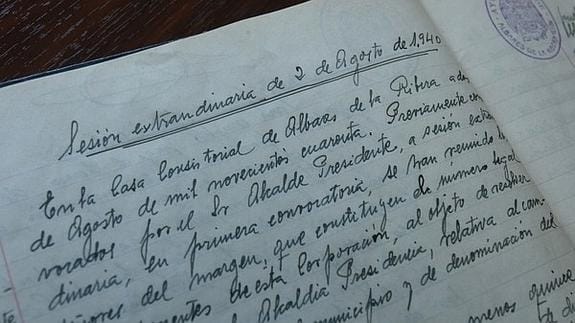 Sesión extrandinaria de 2 de Agosto de 1.940
En la Casa Consistorial de Albares de la Ribera a dos
de Agosto de mil novecientos cuarenta. Previamente con
vocados por el Sr Alcalde Presidente, a sesión extra
dinaria, en primera convocatoria, se han reunido los
señores del margen, que constituyen el numero legal
de esta Corporación, al objeto de resolver
Alcaldia Presidencia, relativa al cam
municipio y de denominación del
menos quince